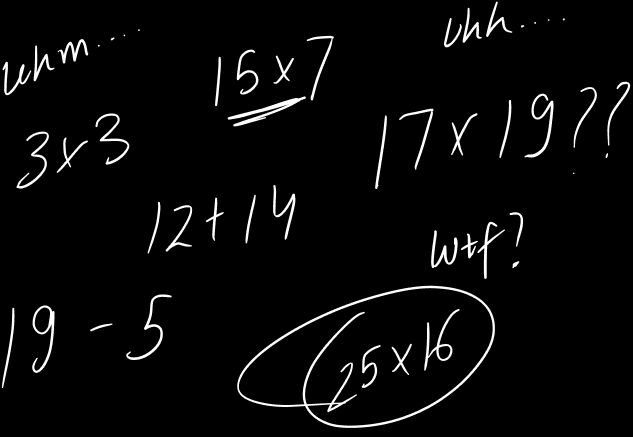 uhm....
15x7
uhh....
3x3
17x19??
12+14
wtf?
19-5
25x16